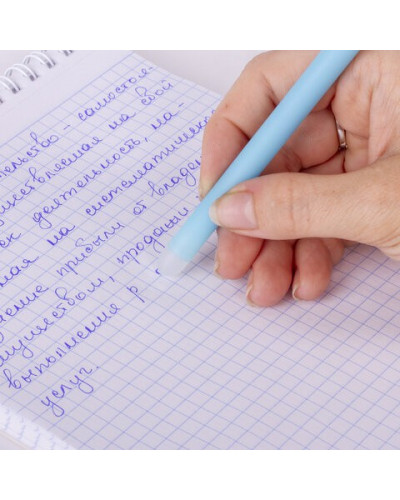 ельство - самостоя-
уществляемая на свой
ск деятельность, на-
ная на систематическ
ение прибыли от владен
муществом, продажи
выполнения р
услуг.